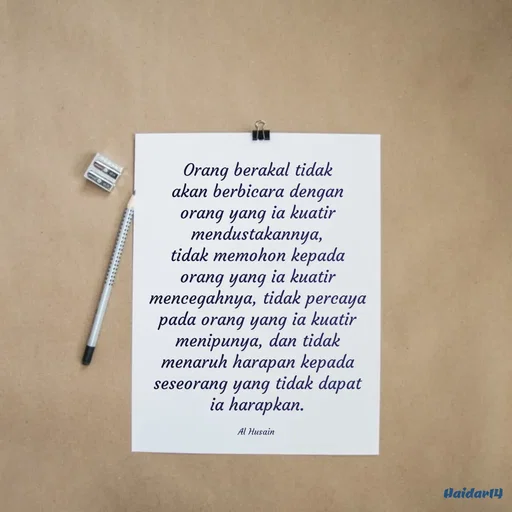 Orang berakal tidak
akan berbicara dengan
orang yang ia kuatir
mendustakannya,
tidak memohon kepada
orang yang ia kuatir
mencegahnya, tidak percaya
pada orang yang ia kuatir
menipunya, dan tidak
menaruh harapan kepada
seseorang yang tidak dapat
ia harapkan.
Al Husain
Haidar14